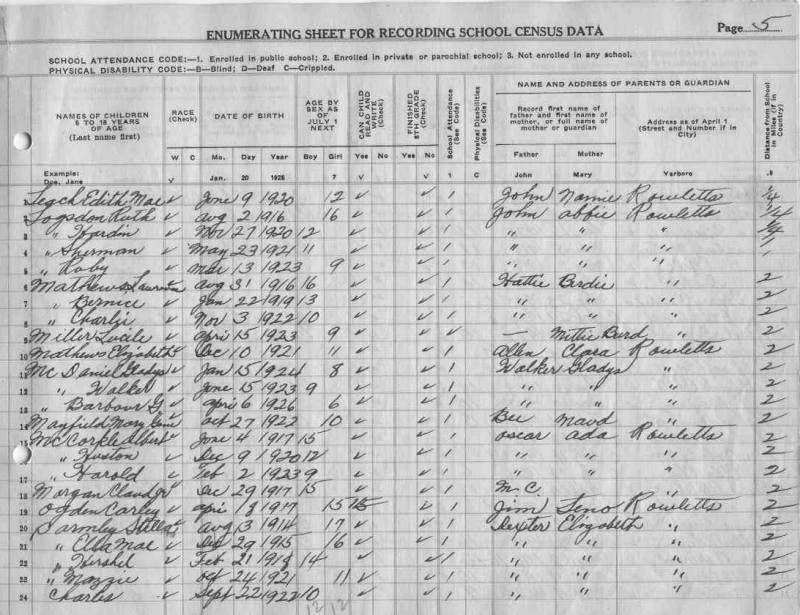 Page 5
ENUMERATING SHEET FOR RECORDING SCHOOL CENSUS DATA
SCHOOL ATTENDANCE CODE:—1. Enrolled in public school; 2. Enrolled in private or parochial school; 3. Not enrolled in any school.
PHYSICAL DISABILITY CODE:—B—Blind; D—Deaf C—Crippled.
NAMES OF CHILDREN 6 TO 18 YEARS OF AGE (Last name first)
RACE (Check)
W C
DATE OF BIRTH
Mo. Day Year
AGE BY SEX AS OF JULY 1 NEXT
Boy Girl
CAN CHILD READ AND WRITE (Check)
Yes No
FINISHED 8TH GRADE (Check)
Yes No
School Attendance (See Code)
Physical Disabilities (See Code)
NAME AND ADDRESS OF PARENTS OR GUARDIAN
Record first name of father and first name of mother, or full name of mother or guardian
Father Mother
Address as of April 1 (Street and Number if in City)
Distance from School in Miles (if in Country)
Example: Doe, Jane V Jan. 20 1925 7 V V 1 C John Mary Yarboro .8
Edith Mae ✓ June 9 1920 12 ✓ ✓ 1 John Nannie Rowletts 1/4
2 Logsdon Ruth ✓ Aug 2 1916 16 ✓ ✓ 1 John Abbie Rowletts 1/4
3 " Hardin ✓ Nov 27 1920 12 ✓ ✓ 1 " " " 1/4
4 " Sherman ✓ May 23 1921 11 ✓ ✓ 1 " " " 1
5 " Roby ✓ Mar 13 1923 9 ✓ ✓ 1 " " " 1
6 Mathews ✓ Aug 31 1916 16 ✓ ✓ 1 Hattie Birdie " 2
7 " Bernice ✓ Jan 22 1919 13 ✓ ✓ 1 " " " 2
8 " Charlie ✓ Nov 3 1922 10 ✓ ✓ 1 " " " 2
9 Miller Lucile ✓ April 15 1923 9 ✓ ✓ ✓ — Mittie Burd " 2
10 Mathews Elizabeth ✓ Dec 10 1921 11 ✓ ✓ 1 Allen Clara Rowletts 2
11 McDaniel Gladys ✓ Jan 15 1924 8 ✓ ✓ 1 Walker Gladys " 2
12 " Walker ✓ June 15 1923 9 ✓ ✓ 1 " " " 2
13 " Barbour G. ✓ April 6 1926 6 ✓ ✓ 1 " " " 2
14 Mayfield Mary ✓ Oct 27 1922 10 ✓ ✓ 1 Bee Maud " 2
15 McCorkle Albert ✓ June 4 1917 15 ✓ ✓ 1 Oscar Ada Rowletts 2
16 " Huston ✓ Dec 9 1920 12 ✓ ✓ 1 " " " 2
17 " Harold ✓ Feb 2 1923 9 ✓ ✓ 1 " " " 2
18 Morgan Claud Jr ✓ Dec 29 1917 15 ✓ ✓ 1 M.C. " 2
19 Ogden Carley ✓ April 8 1917 15 ✓ ✓ 1 Jim Leno Rowletts 2
20 Parmley Stella ✓ Aug 13 1914 17 ✓ ✓ 1 Dexter Elizabeth " 2
21 " Ella Mae ✓ Dec 29 1915 16 ✓ ✓ 1 " " " 2
22 " Hershel ✓ Feb 21 1918 14 ✓ ✓ 1 " " " 2
23 " Mozzie ✓ Oct 24 1921 11 ✓ ✓ 1 " " " 2
24 Charles ✓ Sept 22 1922 10 ✓ ✓ 1 " " " 2
12 12